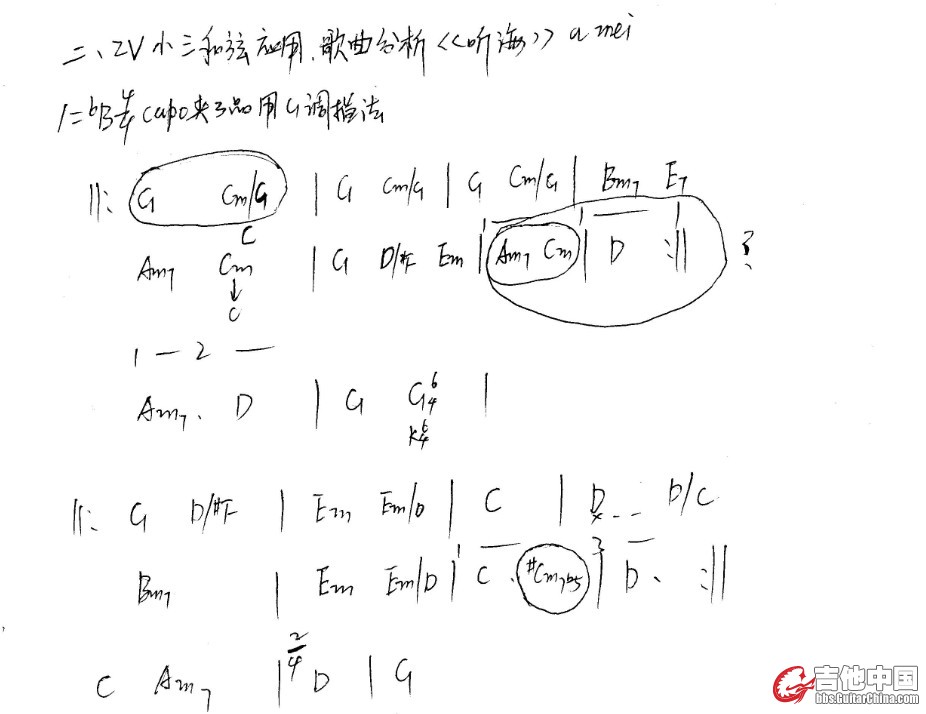 二、IV小三和弦应用.歌曲分析<<听海>> a mei
1=bB 4/4 capo夹3品用G调指法
||: G Cm/G | G Cm/G | G Cm/G | Bm7 E7
C
Am7 Cm | G D/#F Em | Am7 Cm | D :|| ?
C
1 — 2 —
Am7. D | G G6/4 |
K6/4
||: G D/#F | Em Em/D | C | D D/C
Bm7 | Em Em/D | C. #Cm7b5 | D. :||
C Am7 | 2/4 D | G
吉他中国
bbs.GuitarChina.com